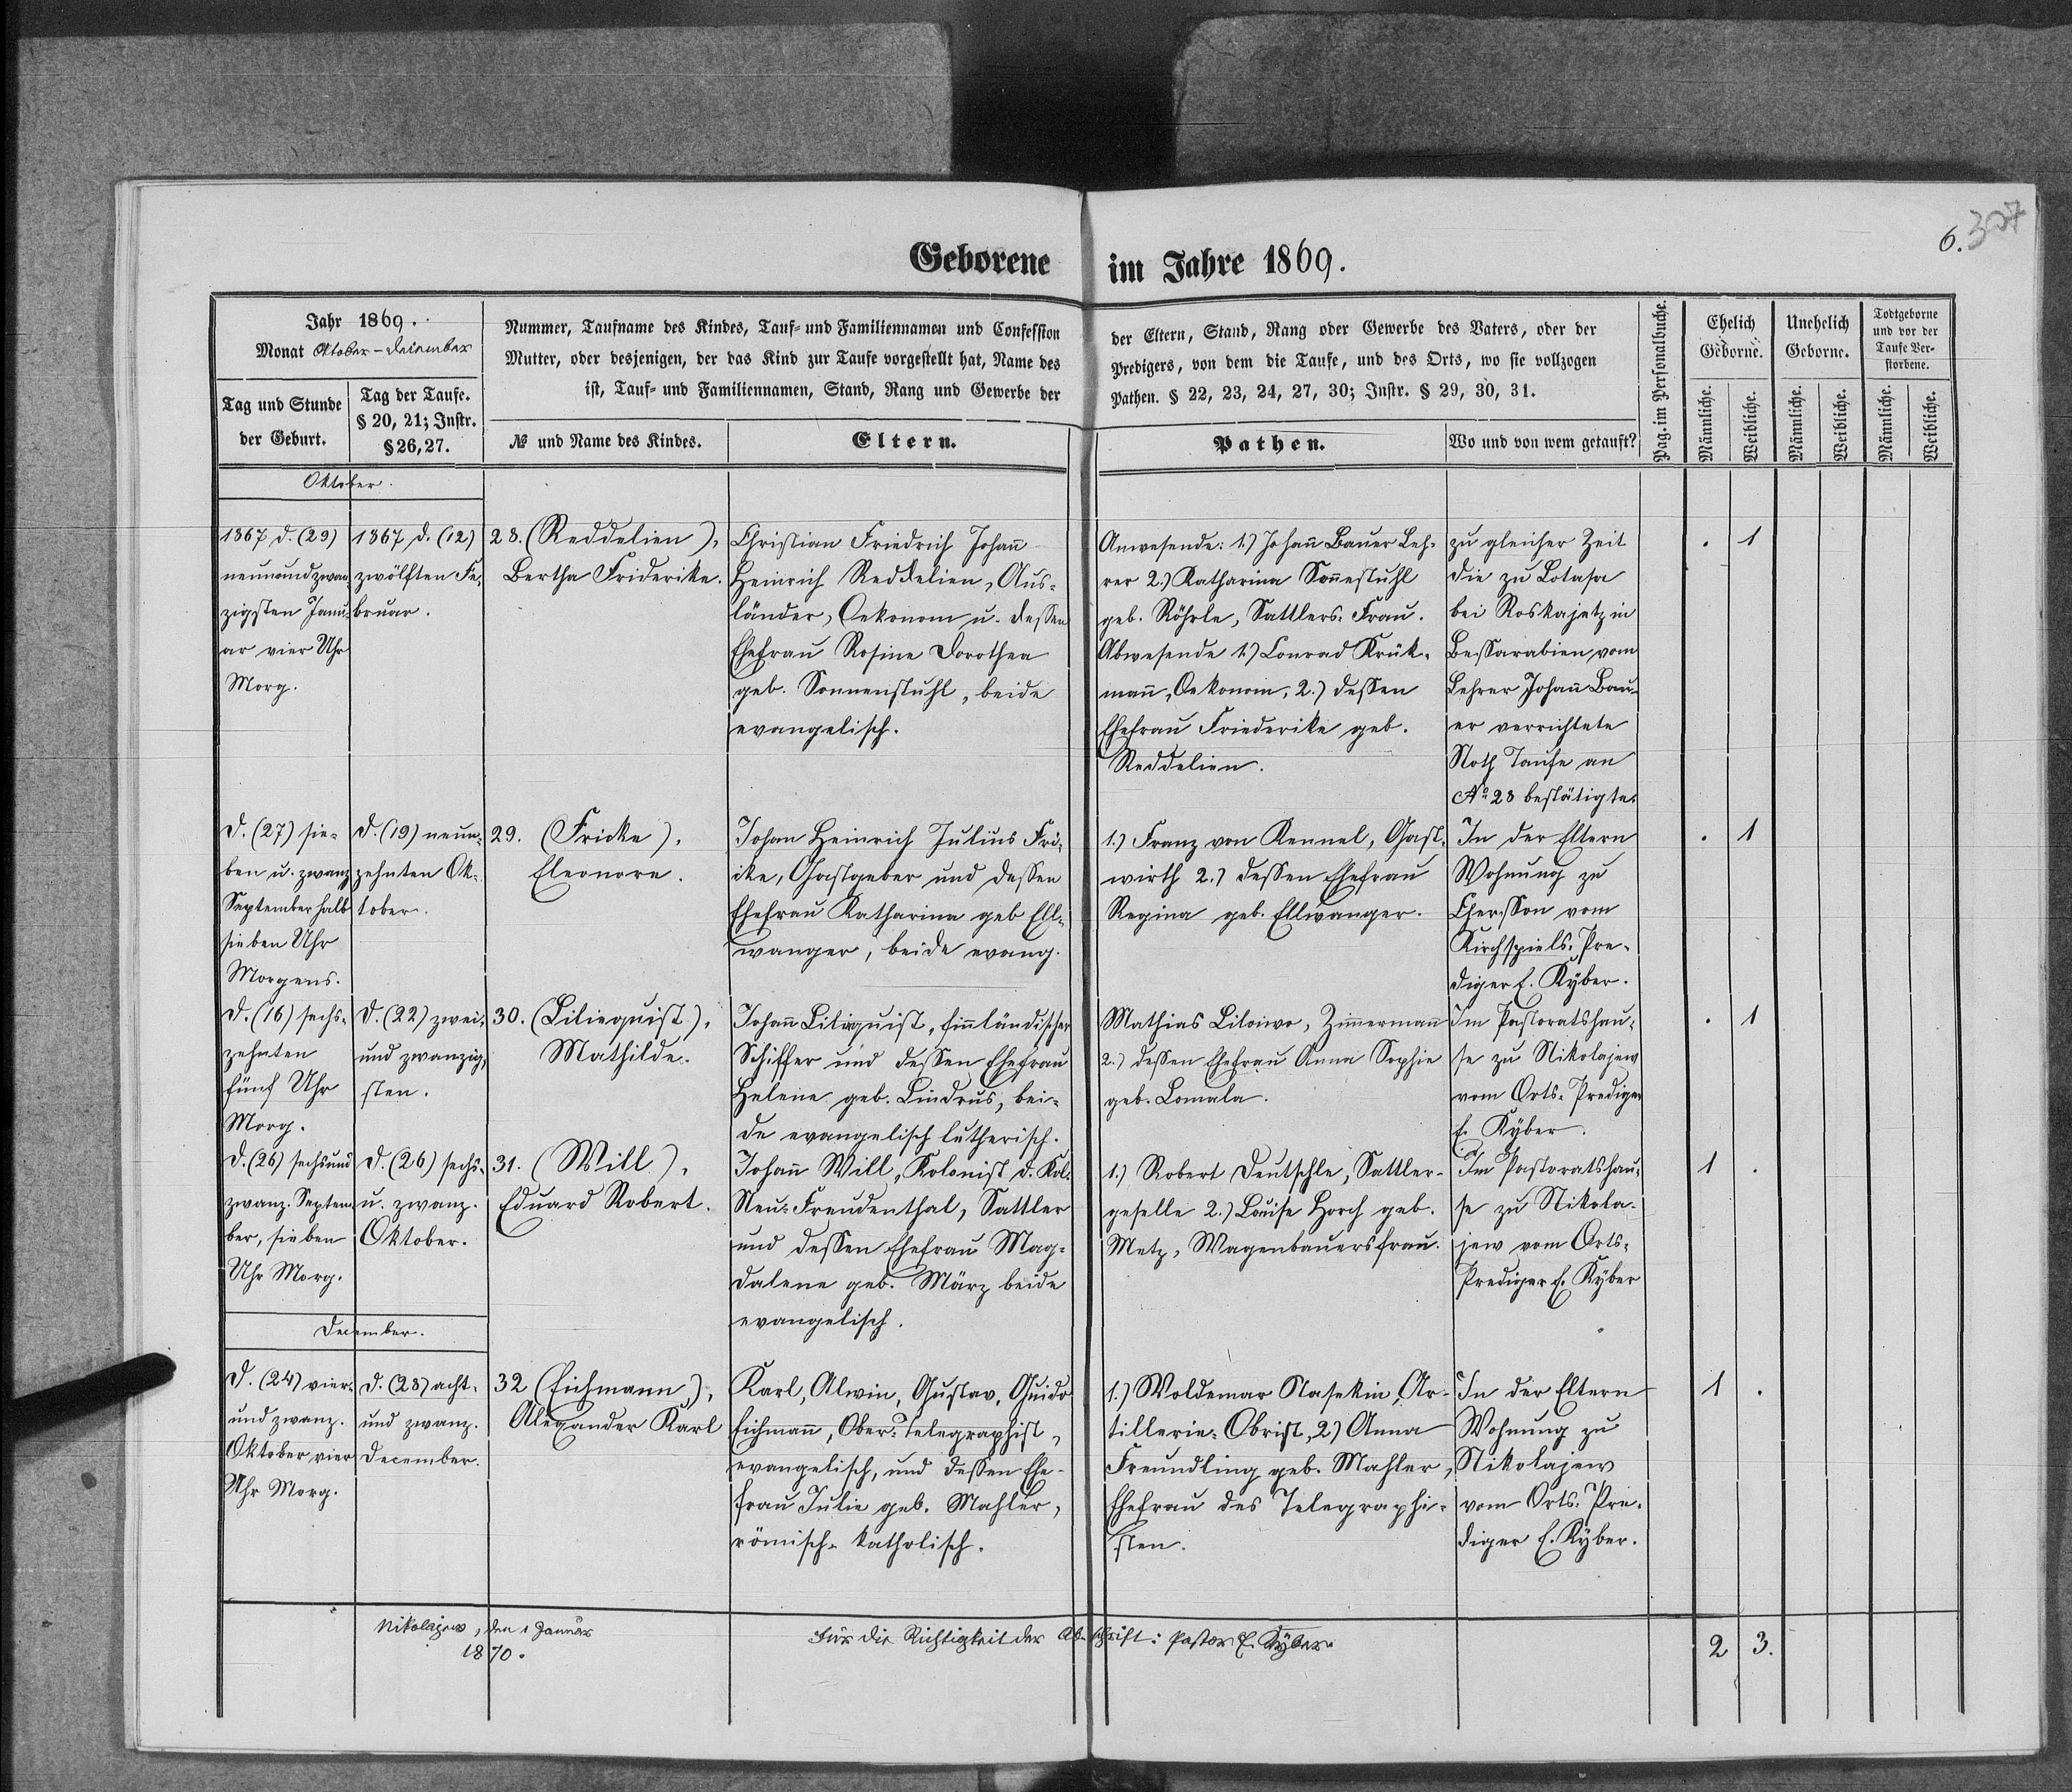 6. 307
Geborene im Jahre 1869.
Jahr 1869.
Monat Oktober - December
Tag und Stunde
der Geburt.
Tag der Taufe.
§ 20, 21; Instr.
§ 26, 27.
Nummer, Taufname des Kindes, Tauf- und Familiennamen und Confession
Mutter, oder desjenigen, der das Kind zur Taufe vorgestellt hat, Name des
ist, Tauf- und Familiennamen, Stand, Rang und Gewerbe der
№ und Name des Kindes.
Eltern.
der Eltern, Stand, Rang oder Gewerbe des Vaters, oder der
Predigers, von dem die Taufe, und des Orts, wo sie vollzogen
Pathen. § 22, 23, 24, 27, 30; Instr. § 29, 30, 31.
Pathen.
Wo und von wem getauft?
Pag. im Personalbuche.
Ehelich
Geborne.
Unehelich
Geborne.
Todtgeborne
und vor der
Taufe Ver-
storbene.
Männliche.
Weibliche.
Männliche.
Weibliche.
Männliche.
Weibliche.
Oktober.
1867 d. (29)
neunundzwan
zigsten Janu-
ar vier Uhr
Morg.
1867 d. (12)
zwölften Fe-
bruar.
28. (Reddelien),
Bertha Friderike.
Christian Friedrich Johan̄
Heinrich Reddelien, Aus-
länder, Oekonom u. dessen
Ehefrau Rosine Dorothea
geb. Sonnenstuhl, beide
evangelisch.
Anwesende: 1.) Johan̄ Bauer Leh-
rer 2.) Katharina Son̄estuhl
geb. Röhrle, Sattlers-Frau.
Abwesende 1.) Conrad Krük-
man̄, Oekonom, 2.) dessen
Ehefrau Friederike geb.
Reddelien.
zu gleicher Zeit
die zu Lotasa
bei Roskajetz in
Bessarabien vom
Lehrer Johan̄ Bau-
er verrichtete
Noth Taufe an
No 28 bestätigte.
. 1
d. (27) sie-
ben u. zwanz
September halb
sieben Uhr
Morgens.
d. (19) neun-
zehnten Ok-
tober.
29. (Fricke),
Eleonore.
Johan Heinrich Julius Fri-
cke, Gastgeber und dessen
Ehefrau Katharina geb Ell-
wanger, beide evang.
1.) Franz von Kennel, Gast-
wirth 2.) dessen Ehefrau
Regina geb. Ellwanger.
In der Eltern
Wohnung zu
Chersson vom
Kirchspiels-Pre-
diger E. Kyber.
. 1
d. (16) sechs-
zehnten
fünf Uhr
Morg.
d. (22) zwei-
und zwanzig-
sten.
30. (Liliequist),
Mathilde.
Johan̄ Liliequist, fin̄ländischer
Schiffer und dessen Ehefrau
Helene geb. Lindrus, bei-
de evangelisch lutherisch.
Mathias Liloiwo, Zim̄ermann
2.) dessen Ehefrau Anna Sophie
geb. Lomala.
Im Pastoratshau-
se zu Nikolajew
vom Orts-Prediger
E. Kyber.
. 1
d. (26) sechsund
zwanz. Septem-
ber, sieben
Uhr Morg.
d. (26) sechs-
u. zwanz.
Oktober.
31. (Will),
Eduard Robert.
Johan̄ Will, Kolonist d. Kol.
Neu-Freudenthal, Sattler
und dessen Ehefrau Mag-
dalene geb. März beide
evangelisch.
1.) Robert Deutschle, Sattler-
geselle 2.) Louise Horch geb.
Metz, Wagenbauersfrau.
Im Pastoratshau-
se zu Nikola-
jew vom Orts-
Prediger E. Kyber
1 .
December.
d. (24) vier-
und zwanz.
Oktober vier
Uhr Morg.
d. (28) acht-
und zwanz.
December.
32 (Eichmann),
Alexander Karl
Karl, Alwin, Gustav, Guido
Eichman̄, Ober-Telegraphist,
evangelisch, und dessen Ehe-
frau Julie geb. Mahler,
römisch-katholisch.
1.) Woldemar Nasekin, Ar-
tillerie-Obrist, 2.) Anna
Freundling geb. Mahler,
Ehefrau des Telegraphi-
sten.
In der Eltern
Wohnung zu
Nikolajew
vom Orts-Pre-
diger E. Kyber.
1 .
Nikolajew, den 1 Januar
1870.
Für die Richtigkeit der Abschrift: Pastor E. Kyber.
2 3.